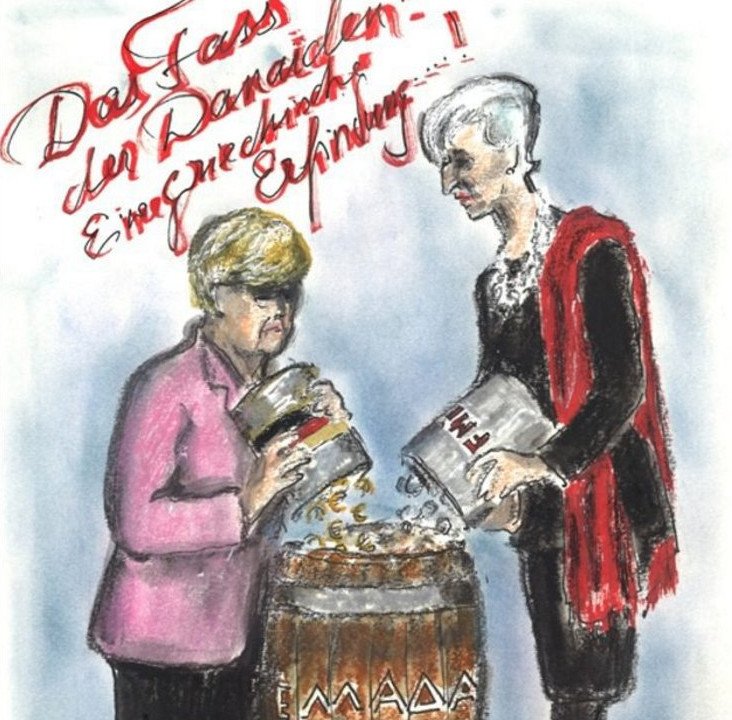 Das Fass
der Danaiden -
Eine griechische
Erfindung....!
FMI
ΕΛΛΑΔΑ